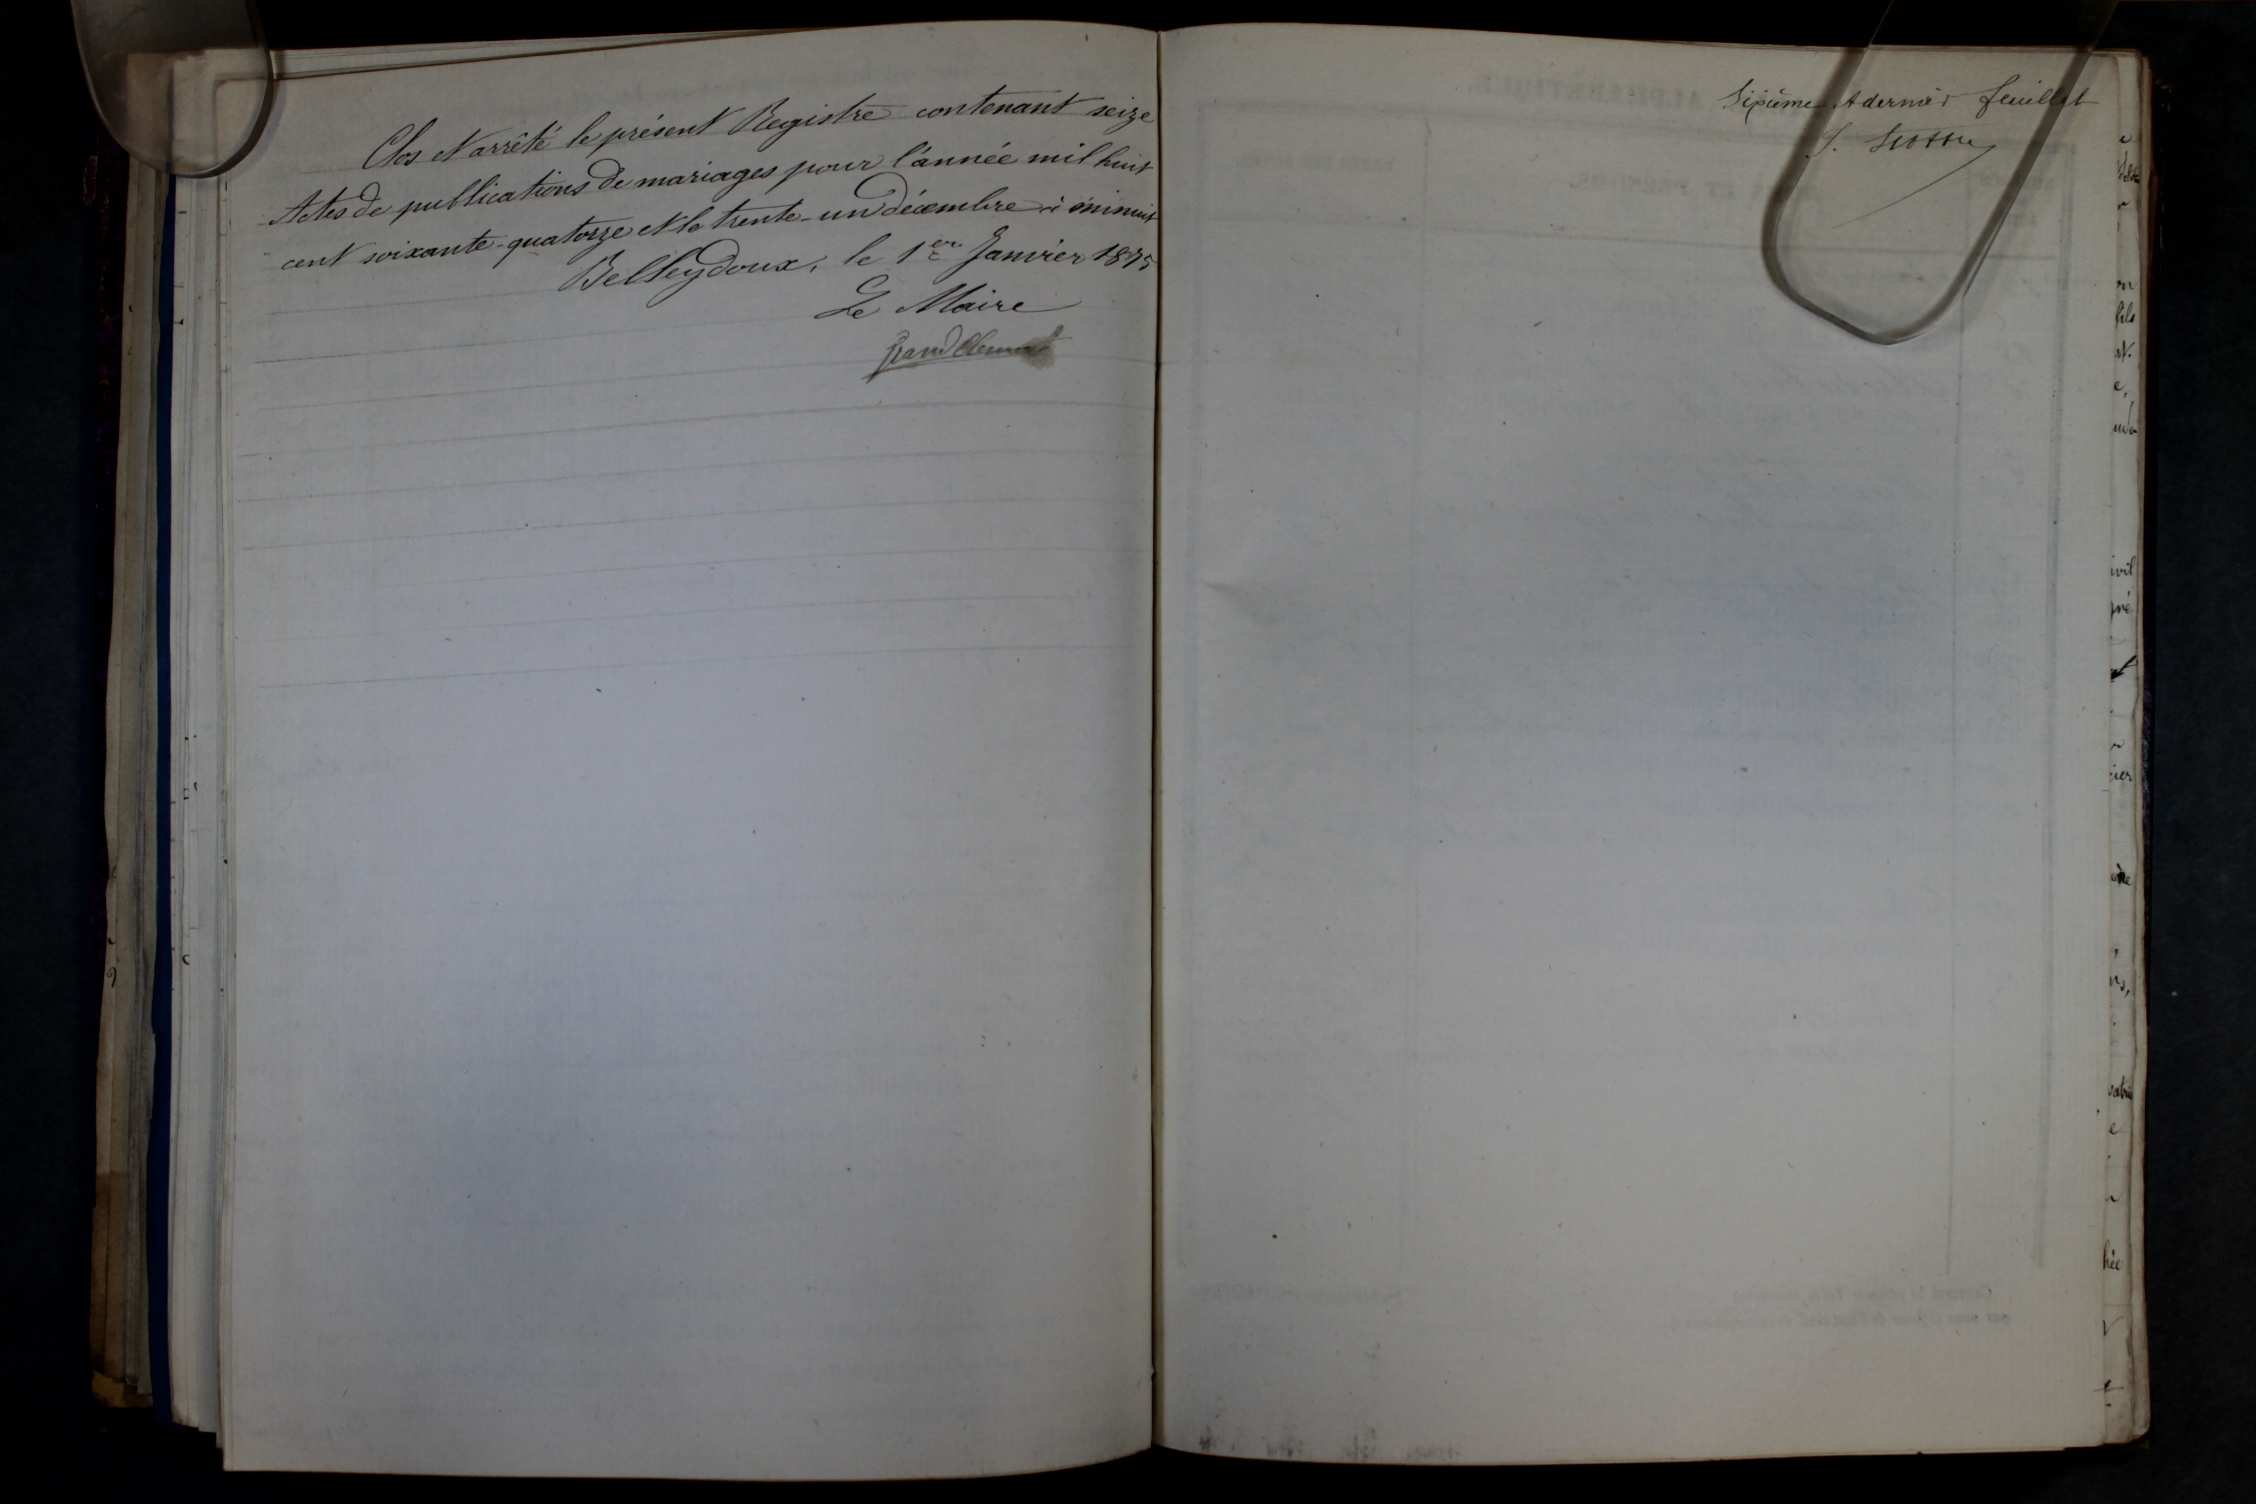 Clos et arrêté le présent Registre contenant seize
Actes de publications de mariages pour l'année mil huit
cent soixante-quatorze et le trente-un décembre à minuit
Belleydoux, le 1er Janvier 1875
Le Maire
Grandclément
Sixième et dernier feuillet